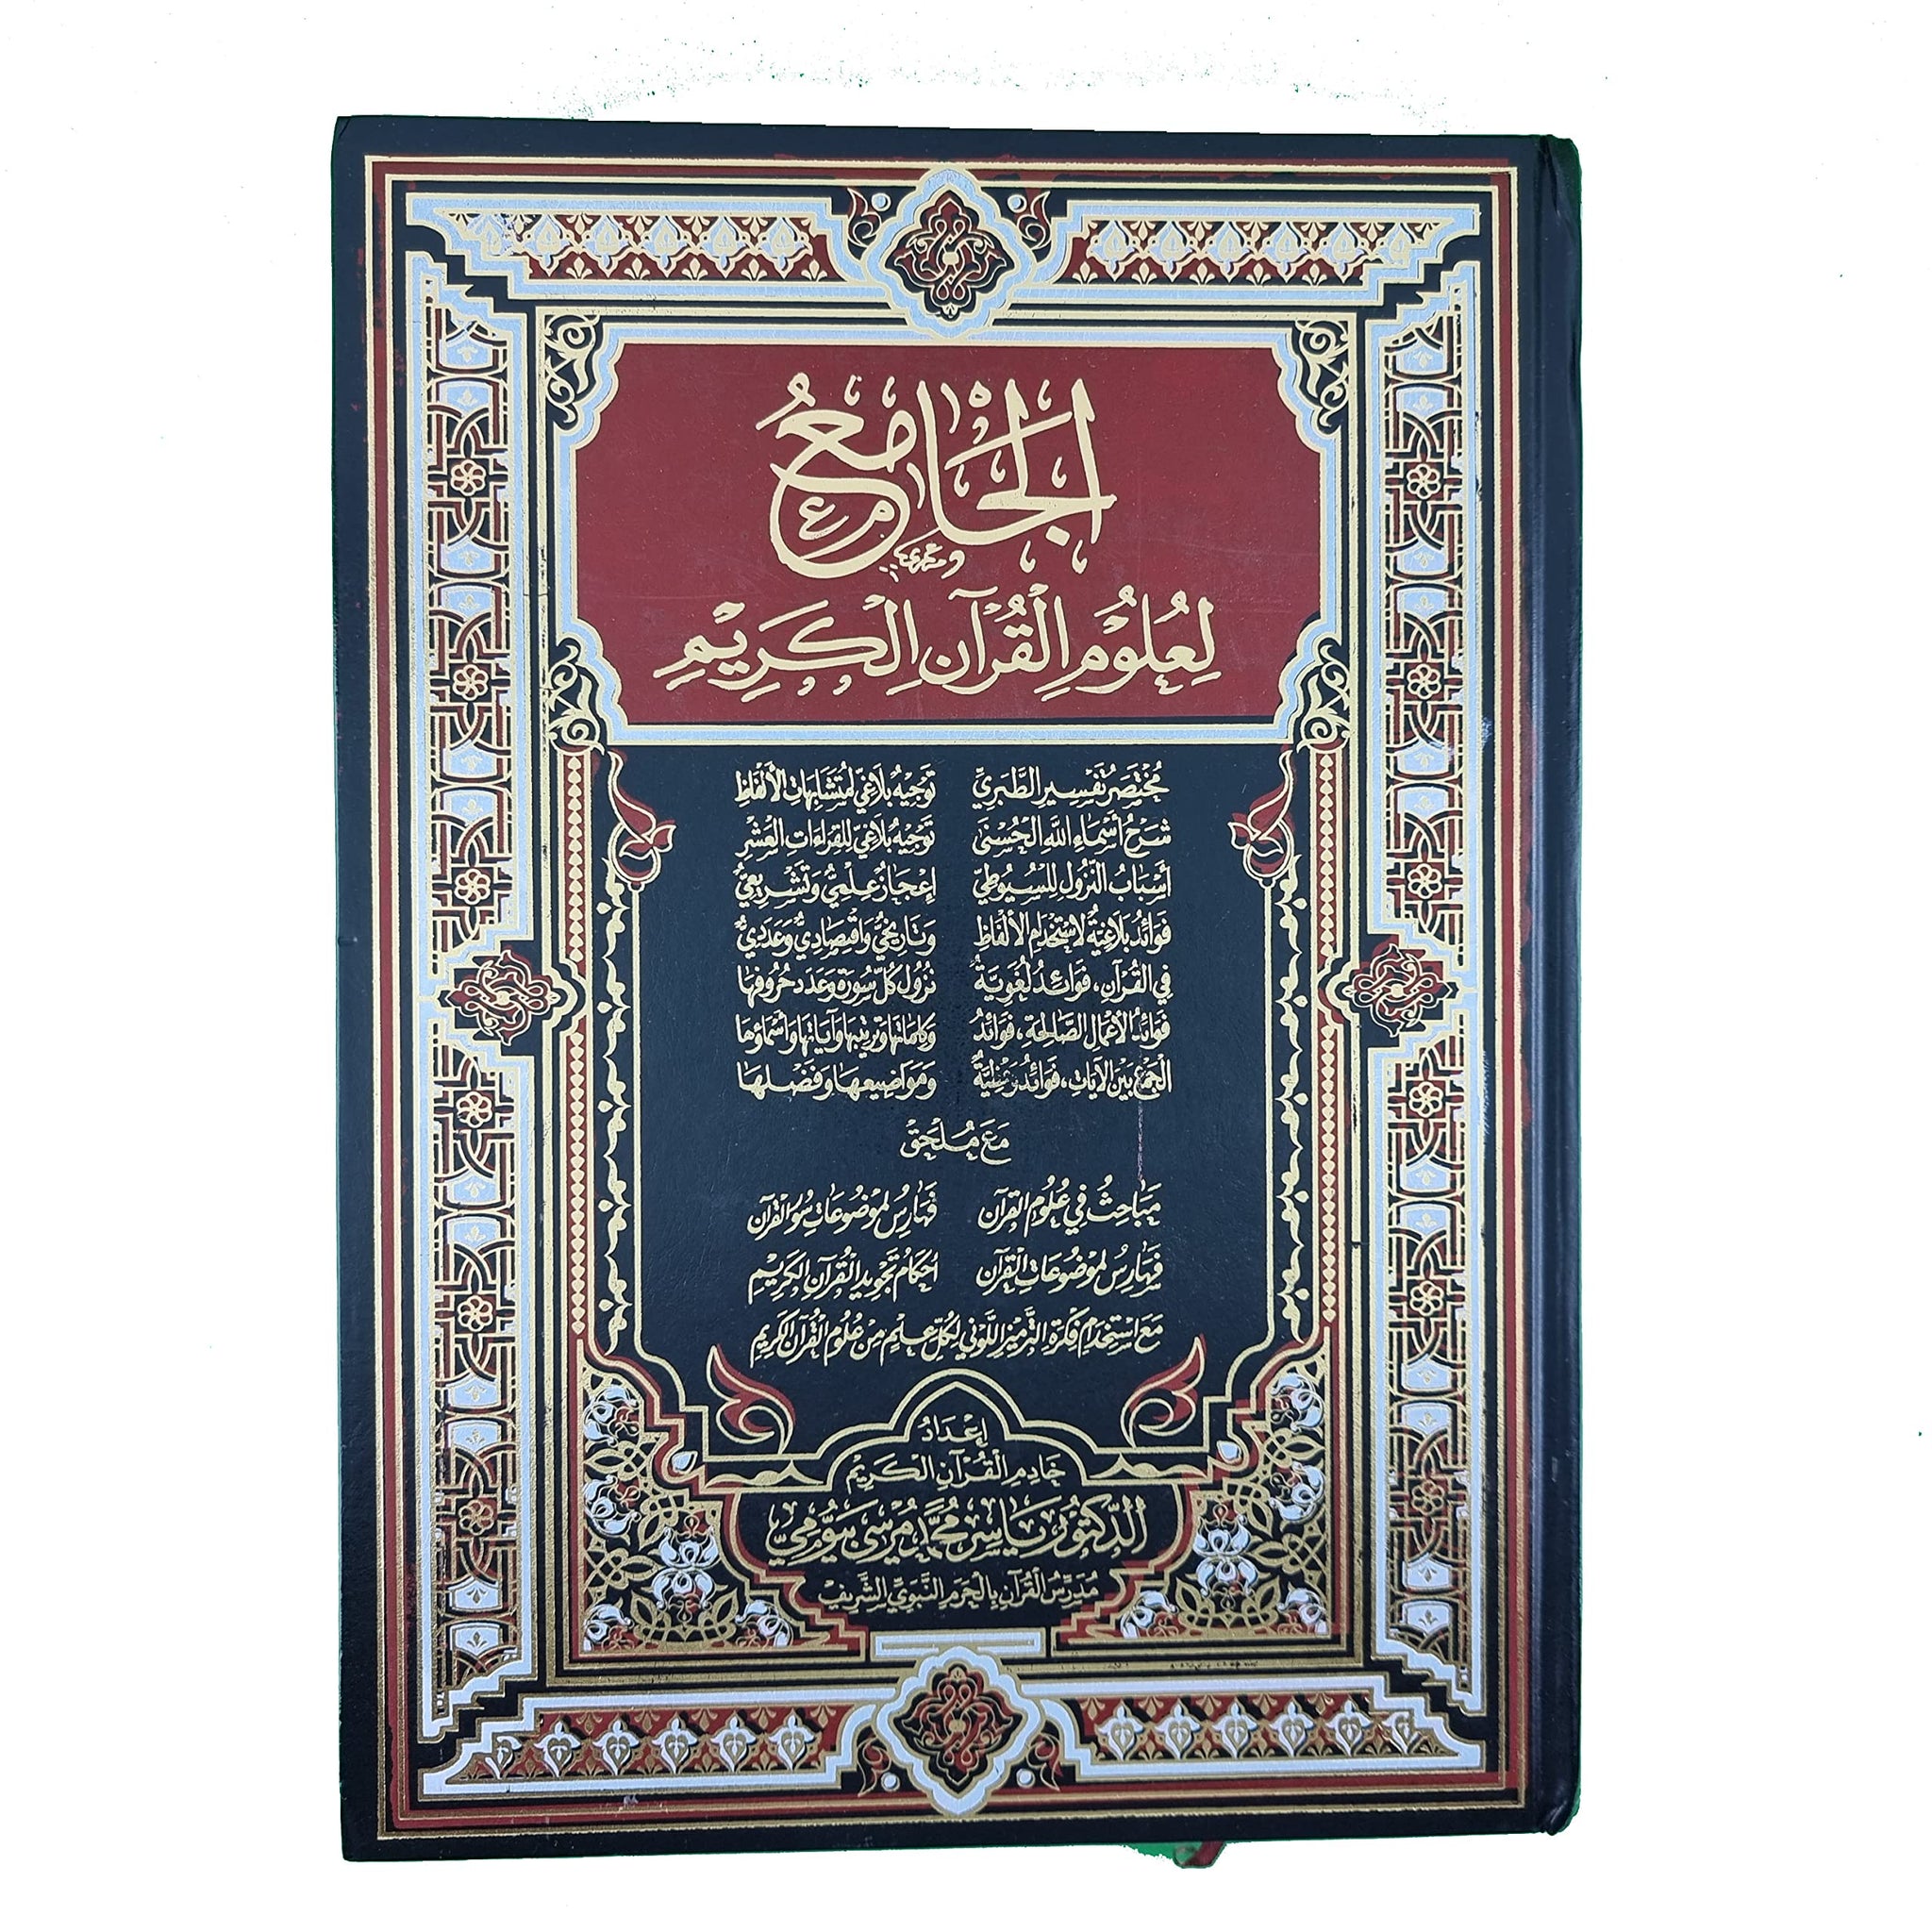 الجَامِعُ
لِعُلُومِ الْقُرْآنِ الْكَرِيمِ
مُخْتَصَرُ تَفْسِيرِ الطَّبَرِيِّ
شَرْحُ أَسْمَاءِ اللَّهِ الْحُسْنَى
أَسْبَابُ النُّزُولِ لِلسُّيُوطِيِّ
فَوَائِدُ بَلَاغِيَّةٌ لِاسْتِخْدَامِ الْأَلْفَاظِ
فِي الْقُرْآنِ، فَوَائِدُ لُغَوِيَّةٌ
فَوَائِدُ الْأَعْمَالِ الصَّالِحَةِ، فَوَائِدُ
الْجَمْعِ بَيْنَ الْآيَاتِ، فَوَائِدُ
تَوْجِيهٌ بَلَاغِيٌّ لِمُتَشَابِهَاتِ الْأَلْفَاظِ
تَوْجِيهٌ بَلَاغِيٌّ لِلْقِرَاءَاتِ الْعَشْرِ
إِعْجَازٌ عِلْمِيٌّ وَتَشْرِيعِيٌّ
وَتَارِيخِيٌّ وَاقْتِصَادِيٌّ وَعَدَدِيٌّ
نُزُولُ كُلِّ سُورَةٍ وَعَدَدَ حُرُوفِهَا
وَكَلِمَاتِهَا وَتَرْتِيبِهَا وَآيَاتِهَا وَأَسْمَاؤُهَا
وَمَوَاضِيعِهَا وَفَضْلِهَا
مَعَ مُلْحَقْ
مَبَاحِثُ فِي عُلُومِ الْقُرْآنِ
فَهَارِسُ لِمَوْضُوعَاتِ سُوَرِ الْقُرْآنِ
فَهَارِسُ لِمَوْضُوعَاتِ الْقُرْآنِ
أَحْكَامُ تَجْوِيدِ الْقُرْآنِ الْكَرِيمِ
مَعَ اسْتِخْدَامِ فِكْرَةِ التَّرْمِيزِ اللَّوْنِي لِكُلِّ عِلْمٍ مِنْ عُلُومِ الْقُرْآنِ الْكَرِيمِ
إِعْدَادُ
خَادِمِ الْقُرْآنِ الْكَرِيمْ
الدِّكْتُورِ يَاسِرْ مُحَمَّدْ مُرْسِى بَيُّومِي
مُدَرِّسُ الْقُرْآنِ بِالْحَرَمِ النَّبَوِيِّ الشَّرِيفْ